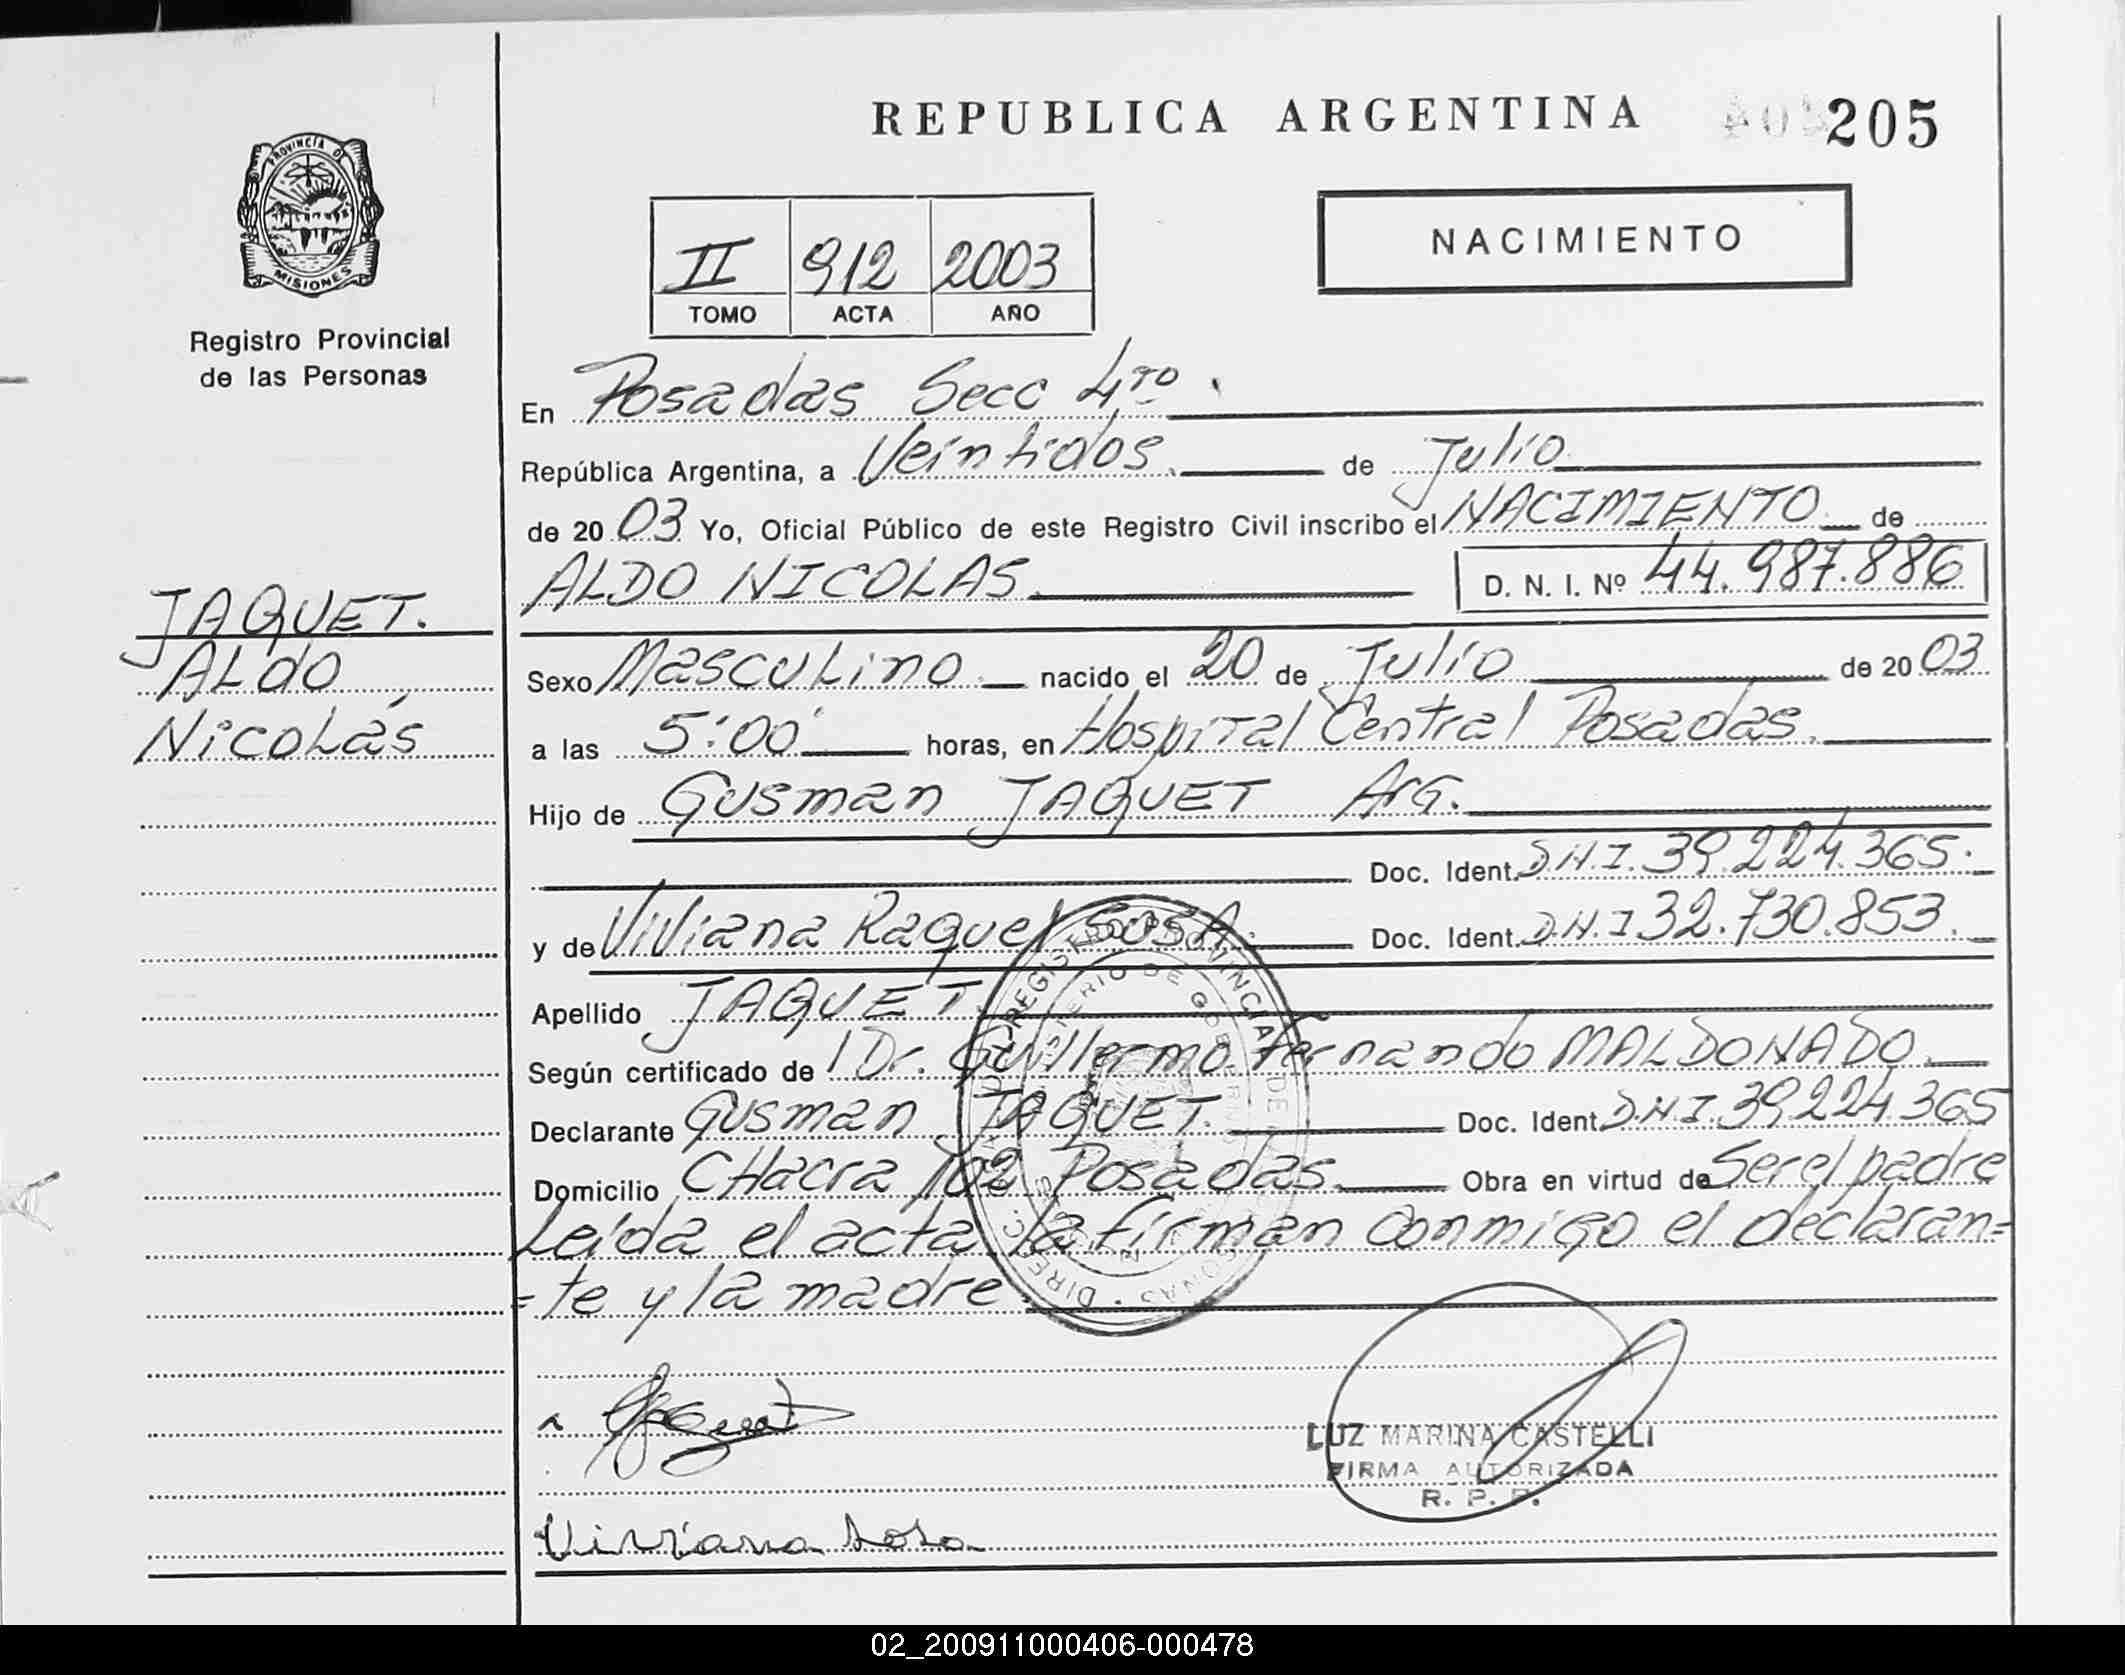 REPUBLICA ARGENTINA 205
PROVINCIA D
MISIONES
Registro Provincial
de las Personas
II 912 2003
TOMO ACTA AÑO
NACIMIENTO
En Posadas Secc 4to.
República Argentina, a Veintidos. de Julio
de 2003 Yo, Oficial Público de este Registro Civil inscribo el NACIMIENTO de
ALDO NICOLAS D. N. I. Nº 44.987.886
JAQUET.
Aldo
Nicolás
Sexo Masculino. nacido el 20 de Julio de 2003
a las 5:00 horas, en Hospital Central Posadas.
Hijo de Gusman JAQUET Arg.
Doc. Ident. D.N.I. 39.224.365.
y de Viviana Raquel SOSA. Doc. Ident. D.N.I 32.730.853.
Apellido JAQUET.
Según certificado de Dr. Guillermo Fernando MALDONADO.
Declarante Gusman JAQUET. Doc. Ident. D.N.I. 39.224.365
Domicilio CHacra 102 Posadas. Obra en virtud de Ser el padre
Leída el acta, la firman conmigo el declaran=
=te y la madre.
LUZ MARINA CASTELLI
FIRMA AUTORIZADA
R. P. P.
Viviana Sosa
02_200911000406-000478